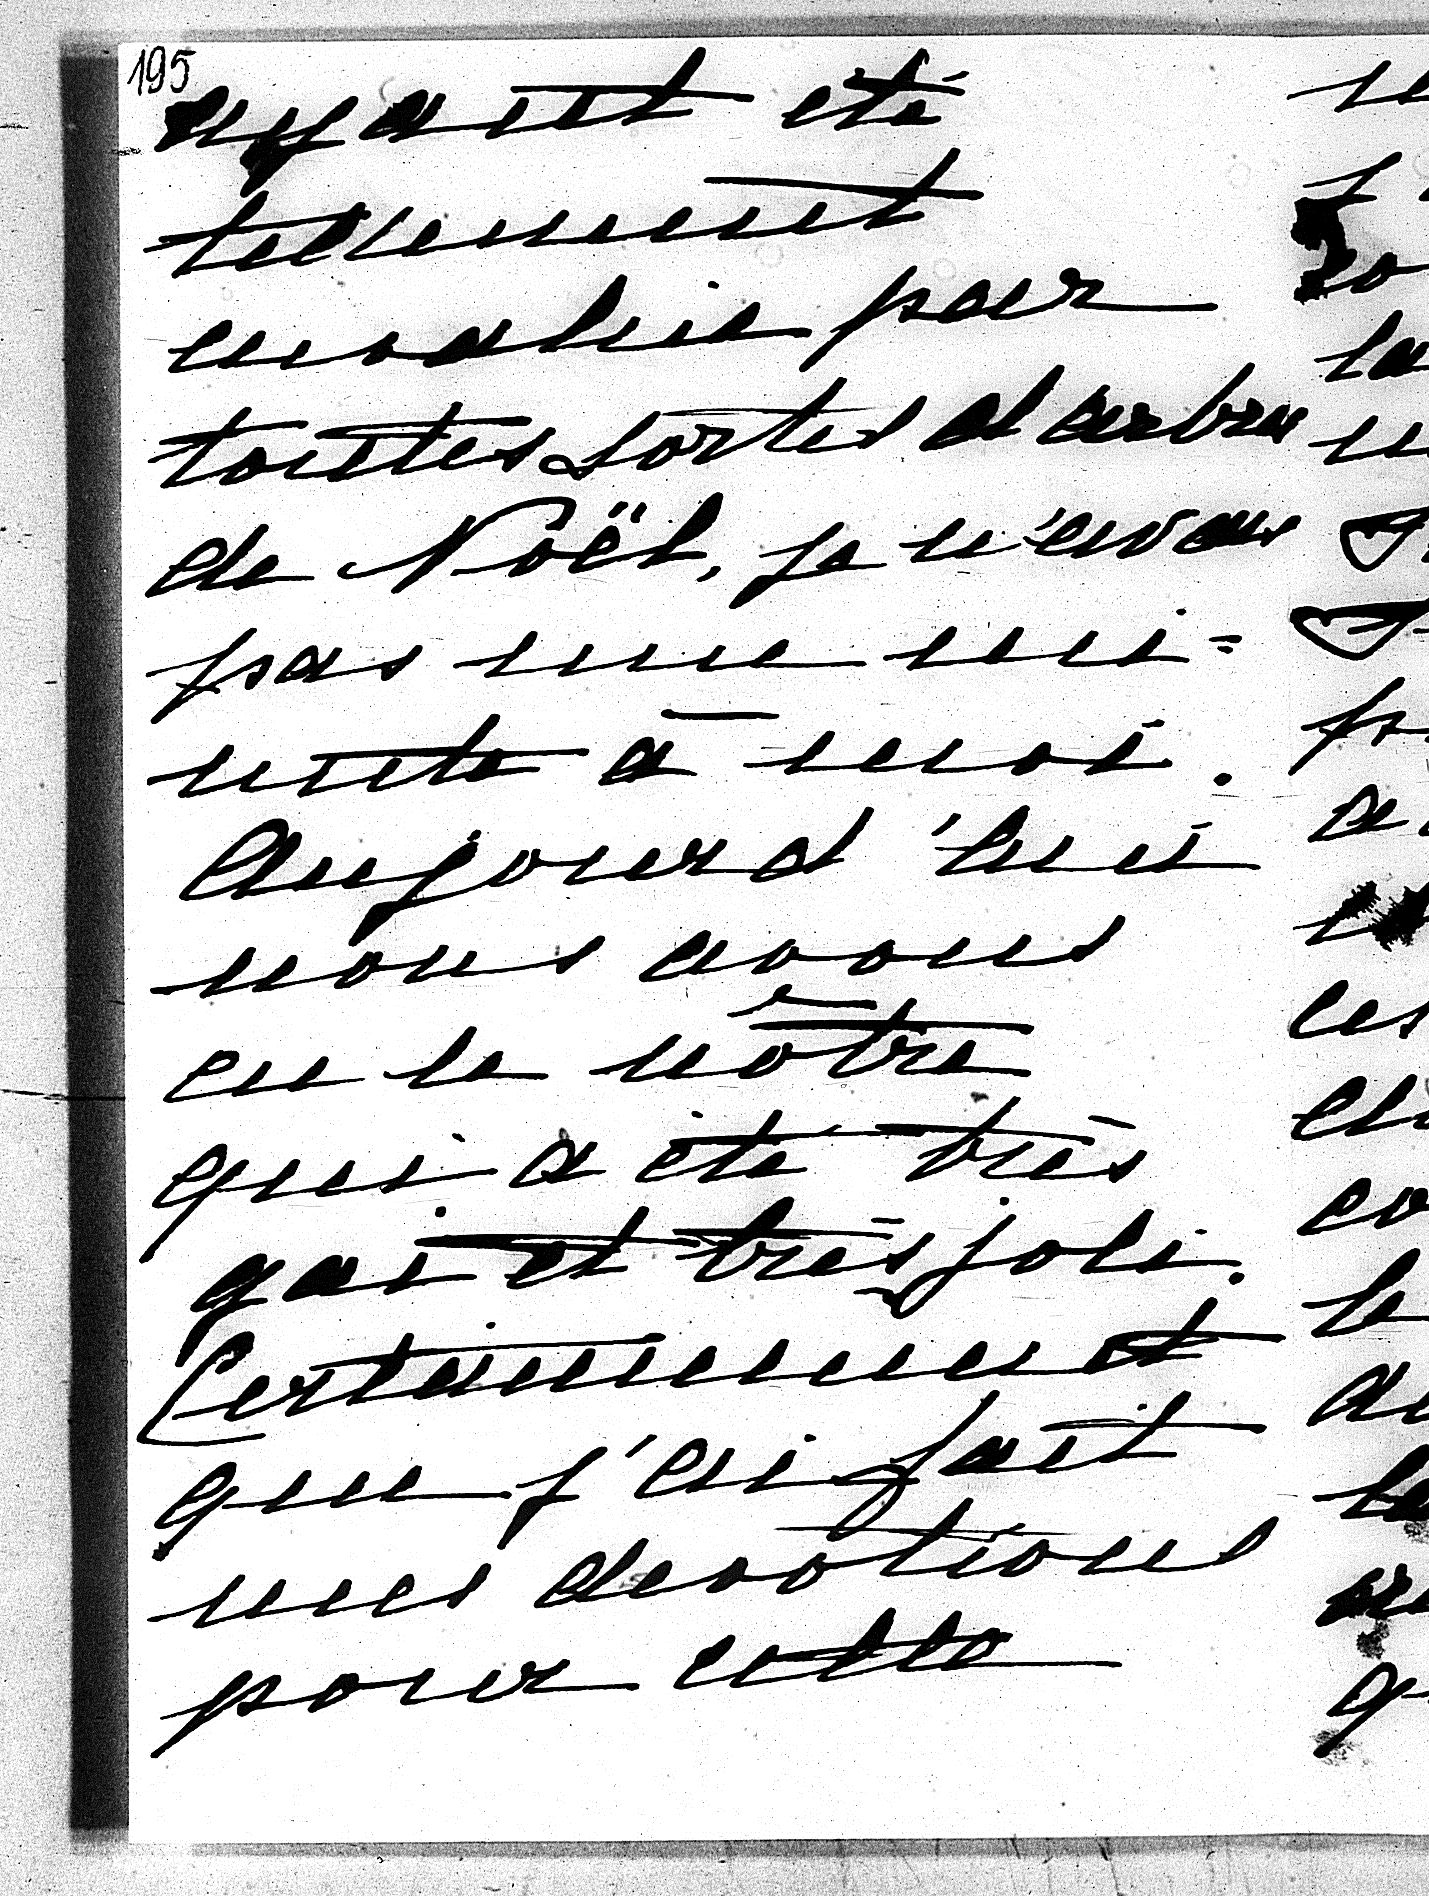 195
ayant été
tellement
envahie par
toutes sortes d'arbres
de Noël, je n'avais
pas une mi-
nute à moi.
Aujourd'hui
nous avons
eu le nôtre
qui a été très
gai et très joli.
Certainement
que j'ai fait
mes devotions
pour cette